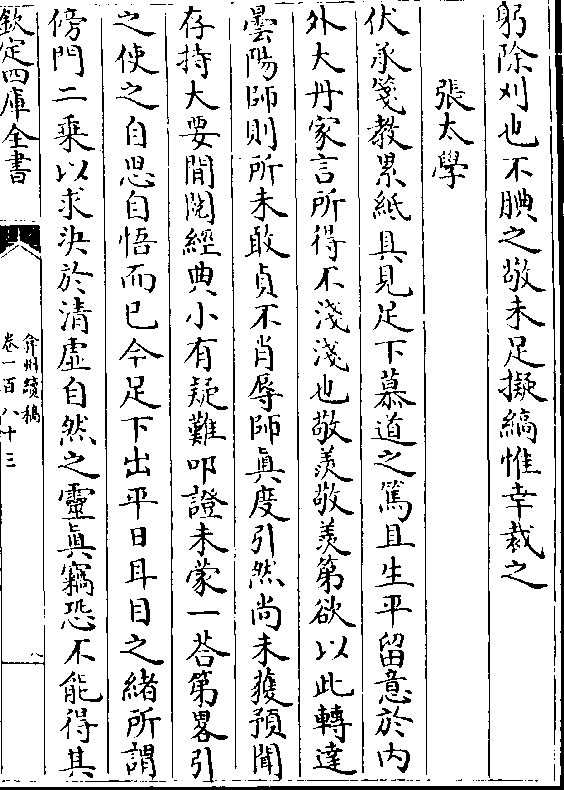 躬除刈也不腆之敬未足擬縞惟幸裁之
張太學
伏承箋教累紙具見足下慕道之篤且生平留意於内
外大丹家言所得不淺淺也敬羨敬羨第欲以此轉達
曇陽師則所未敢貞不肖辱師眞度引然尚未獲預聞
存持大要間閲經典小有疑難叩證未蒙一荅第畧引
之使之自思自悟而已今足下出平日耳目之緒所謂
傍門二乗以求決於清虚自然之靈眞竊恐不能得其
欽定四庫全書
弇州續稿
卷一百八十三
八